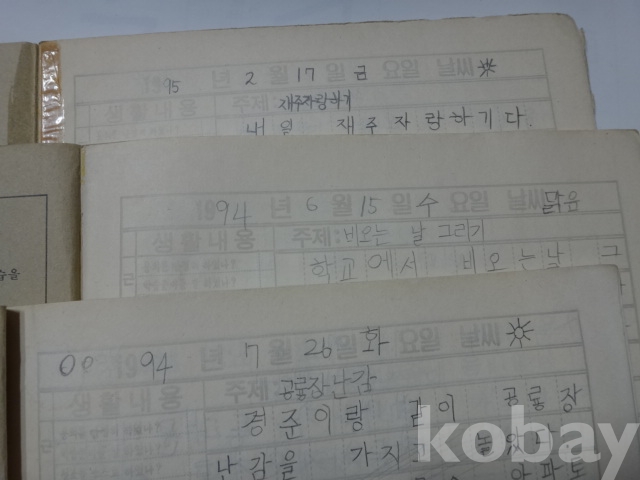 1995 년 2 월 17 일 금 요일 날씨
생활내용 주제: 재주자랑하기
내일 재주자랑하기다.
1994 년 6 월 15 일 수 요일 날씨 맑음
생활내용 주제: 비오는 날 그리기
학교에서 비오는날 그
습을
1994 년 7 월 26 일 화 요일 날씨
생활내용 주제: 공룡장난감
경준이랑 같이 공룡장
난감을 가지고 놀았다.
kobay